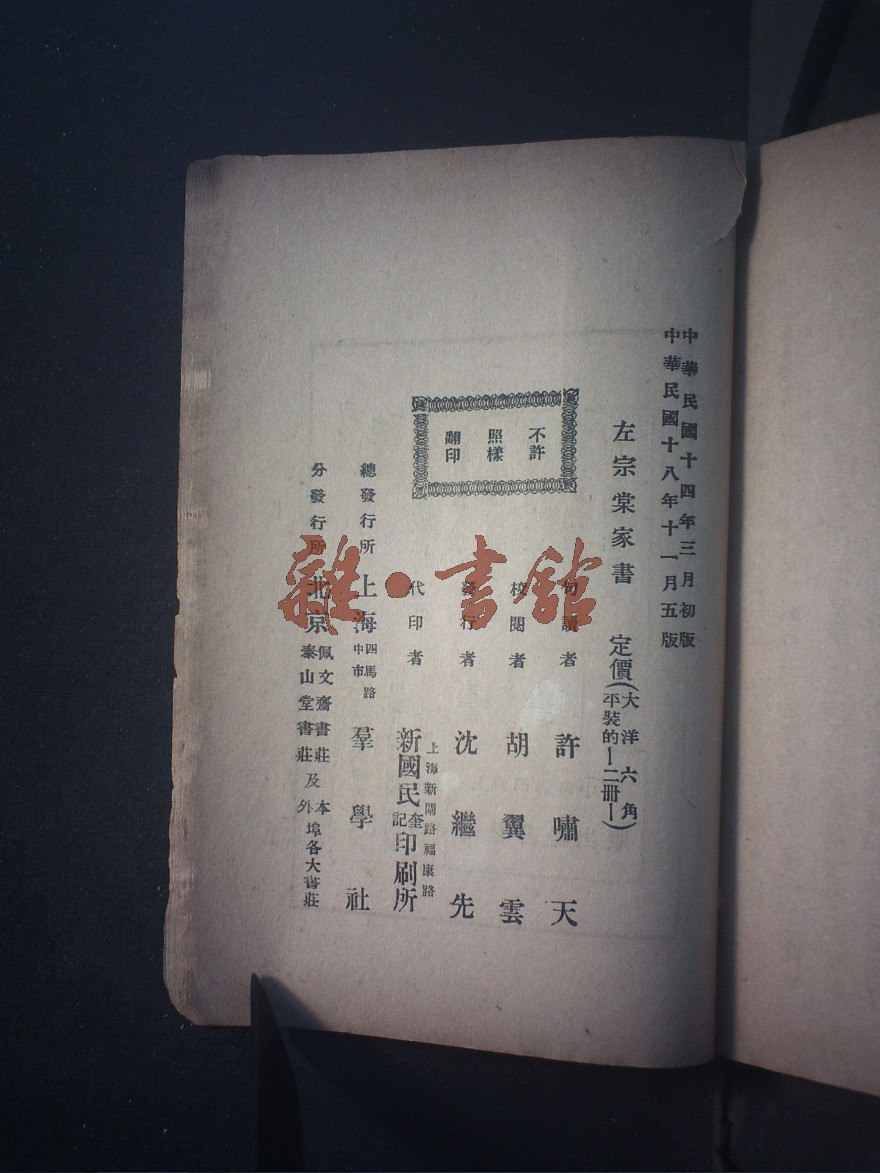 中華民國十四年三月初版
中華民國十八年十一月五版
左宗棠家書 定價(大洋六角 平裝的—二冊—)
不許
照樣
翻印
句讀者 許嘯天
校閱者 胡翼雲
發行者 沈繼先
代印者 上海新閘路福康路 新國民奎記印刷所
總發行所 上海四馬路中市 羣學社
分發行所 北京佩文齋書莊泰山堂書莊及本外埠各大書莊
雜·書館